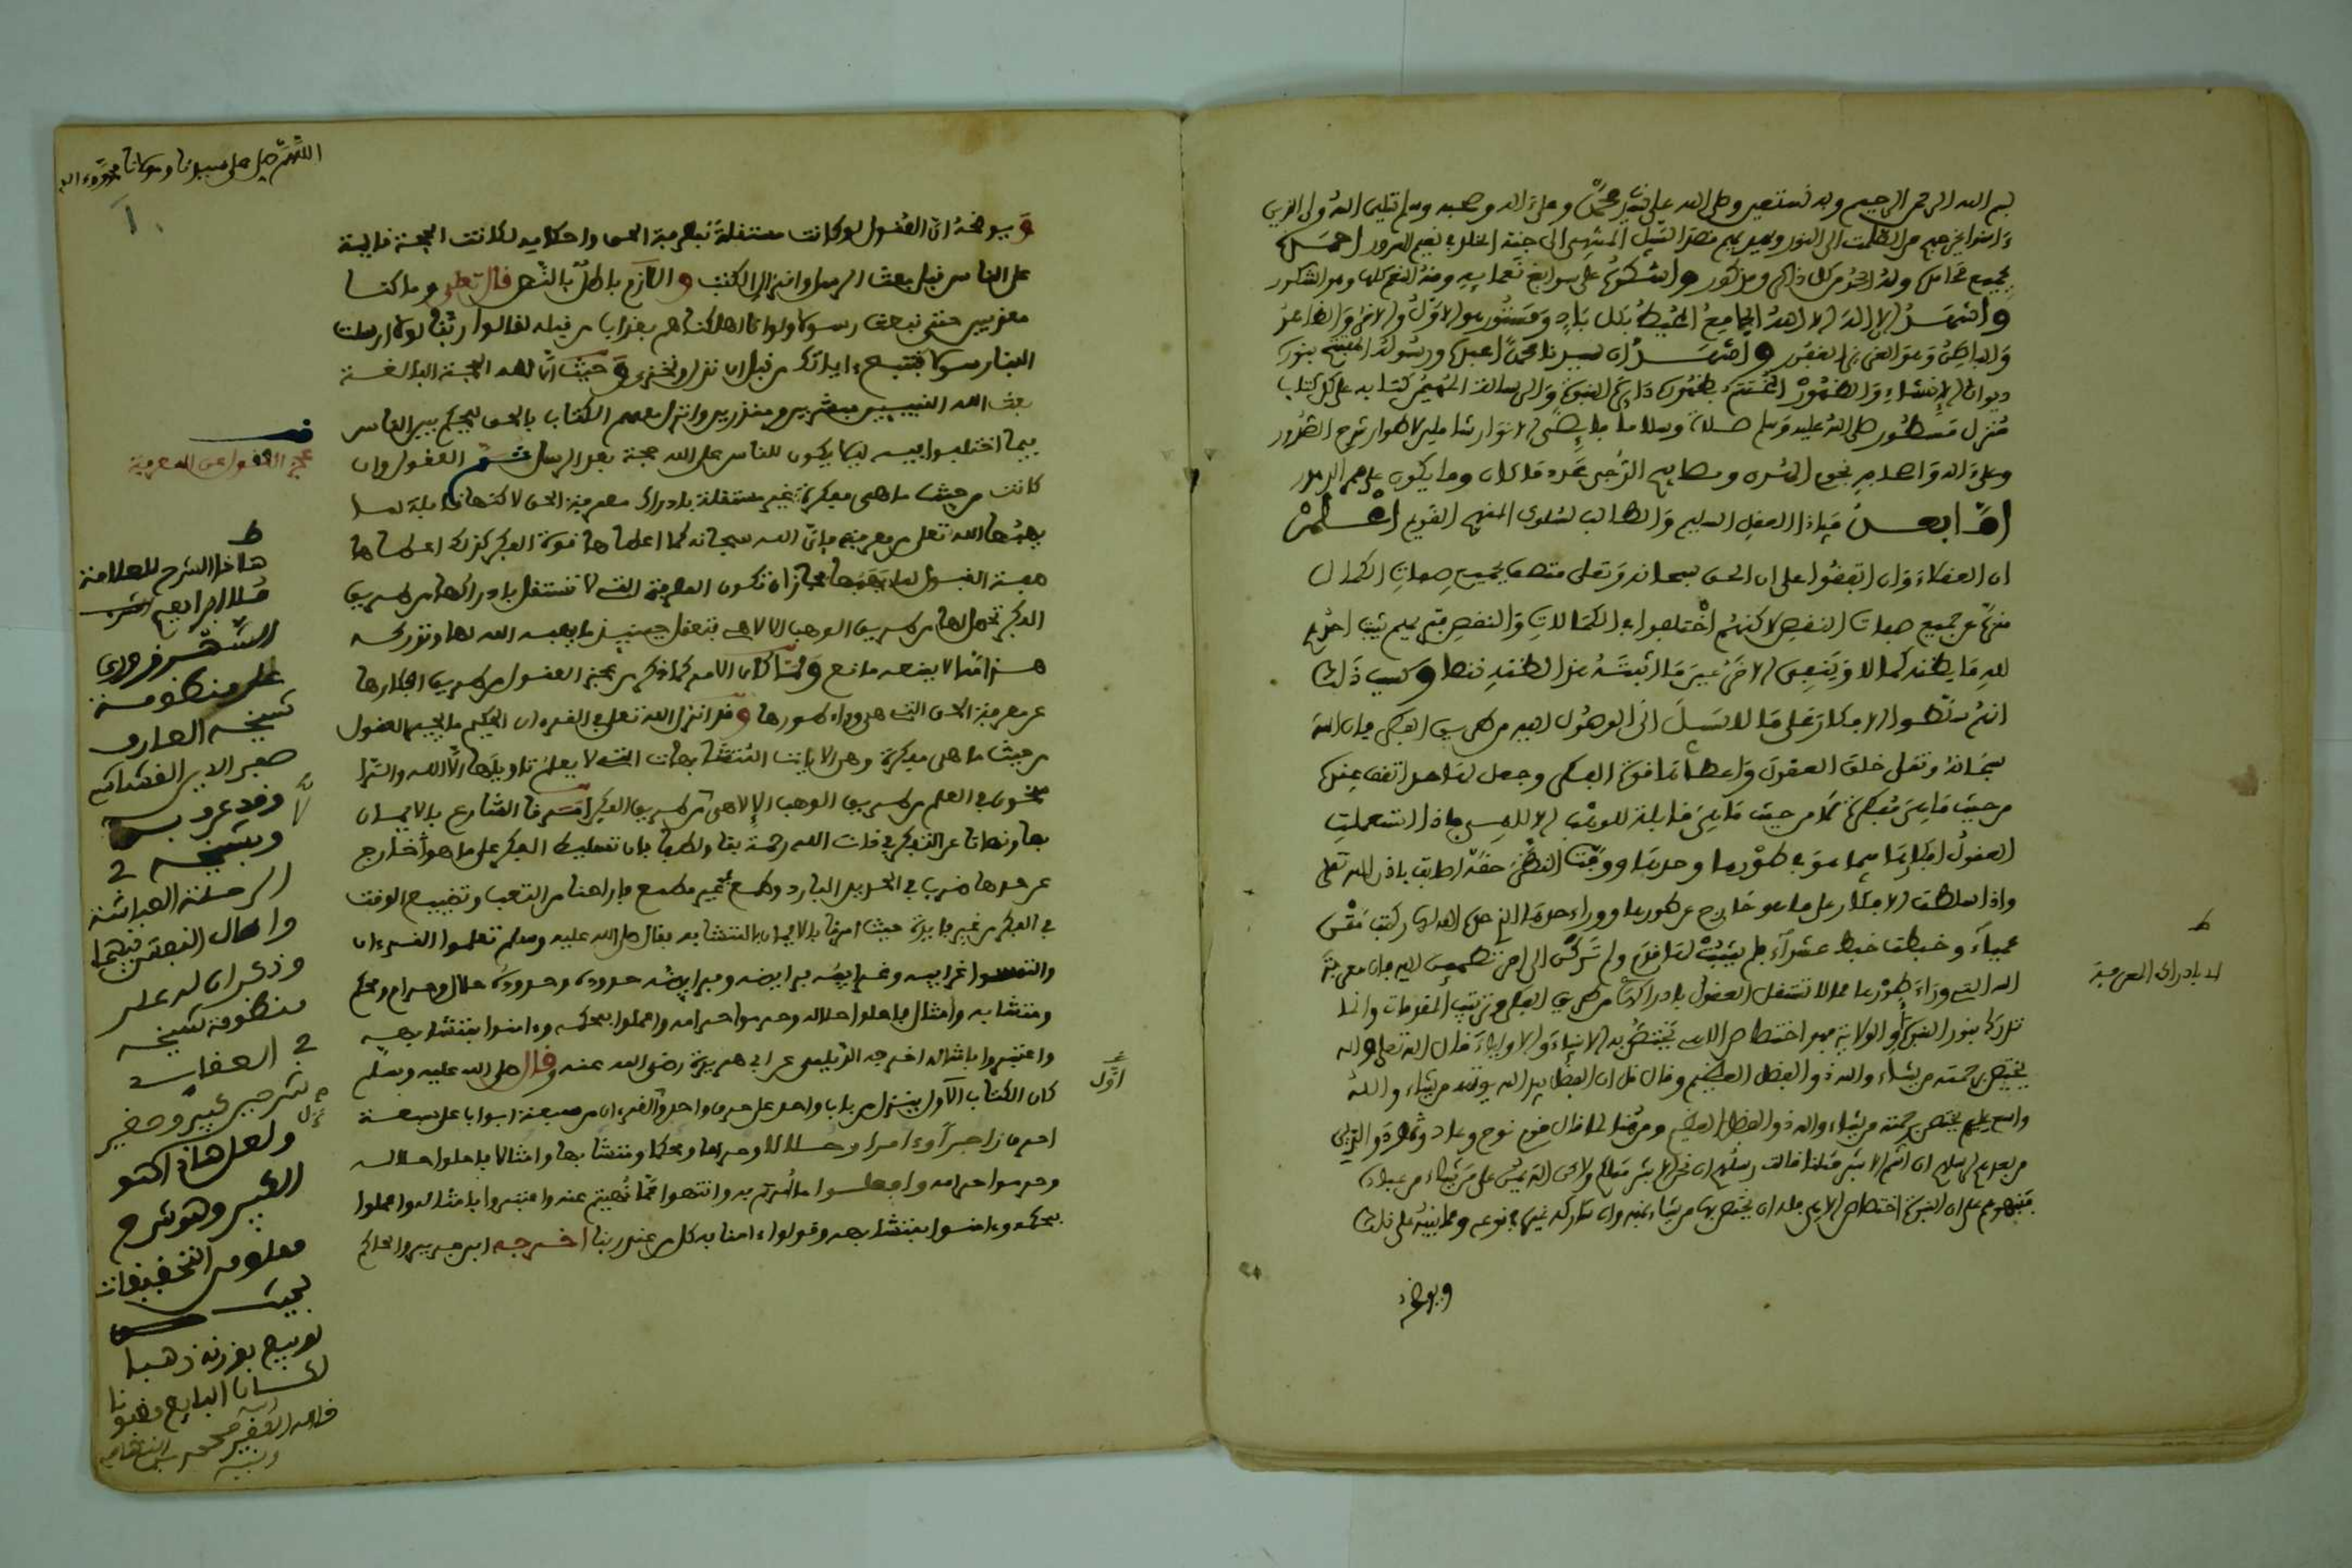 بسم الله الرحمن الرحيم وبه نستعين وصلى الله على سيدنا محمد وعلى ءاله وصحبه وسلم تقليم الله ولي الذين
ءامنوا يخرجهم من الظلمت الى النور ويهديهم قصد السبيل المنتهى الى جنة الخلد في نعيم السرور احمده
بجميع محامده وله الحمد من كل ذاكر ومذكور واشكره على سوابغ نعمايه ومنه النعم كلها وهو الشكور
واشهد ان لا اله الا الله الجامع المحيط بكل باد ومستور هو الاول والاخر والظاهر
والباطن وهو العزيز الغفور واشهد ان سيدنا محمدا عبده ورسوله المفتتح بنوره
ديوان الانشاء والظهور المختتم بظهوره دايرة النبوة والرسالة المهيمن كتابه على كل كتاب
منزل مسطور صلى الله عليه وسلم صلاة وسلاما فايضى الانوار شاملى الاطوار شرح الصدور
وعلى ءاله واصحابه نجوم السرى ومصابيح الدجى عدد ما كان وما يكون على ممر الدهور
اما بعد فيا ذا العقل السليم والطالب لسلوك المنهج القويم اعلم
ان العقلاء وان اتفقوا على ان الحق سبحانه وتعلى متصف بجميع صفات الكمال
منزه عن جميع صفات النقص لاكنهم اختلفوا في الكمالات والنقص فتريهم يثبت احدهم
لله ما يظنه كمالا وينفى الاخر عين ما اثبته هذا لظنه نقصا وسبب ذلك
انهم سلطوا الافكار على ما لا سبيل الى الوصول اليه من طريق الفكر فان الله
سبحانه وتعلى خلق العقول واعطاها قوة الفكر وجعل لها حدا تقف عنده
من حيث ما هي مفكرة لا من حيث ما هي قابلة للوهب الالهي فاذا استعملت
العقول افكارها فيما هو في طورها وحدها ووفت النظر حقه اصابت باذن الله تعلى
واذا سلطت الافكار على ما هو خارج عن طورها ووراء حدها الذي حده الله لها ركبت متن
عمياء وخبطت خبط عشواء فلم يثبت لها قدم ولم تركن الى امر تطمين اليه فان معرفة
الله التي وراء طورها مما لا تستقل العقول بادراكها من طريق الفكر وترتيب المقدمات وانما
تدرك بنور النبوة او الولاية فهو اختصاص الاهي يختص به الانبياء والاولياء قال الله تعلى والله
يختص برحمته من يشاء والله ذو الفضل العظيم وقال قل ان الفضل بيد الله يوتيه من يشاء والله
واسع عليم يختص برحمته من يشاء والله ذو الفضل العظيم ومن هنا لما قال قوم نوح وعاد وثمود والذين
من بعدهم لرسلهم ان انتم الا بشر مثلنا قالت رسلهم ان نحن الا بشر مثلكم ولاكن الله يمن على من يشاء من عباده
فنبهوهم على ان النبوة اختصاص الاهي فله ان يختص بها من يشاء منه وان شاركه غيره في نوعه ومما ينبه على ذلك
ويوضحه
ط
لا بادراك المعرفة
ويوضحه ان العقول لو كانت مستقلة بمعرفة الحق واحكامه لكانت الحجة قايمة
على الناس قبل بعث الرسل وانزال الكتب واللازم باطل بالنص قال تعلى وما كنا
معذبين حتى نبعث رسولا ولو انا اهلكناهم بعذاب من قبله لقالوا ربنا لولا ارسلت
الينا رسولا فنتبع ءاياتك من قبل ان نذل ونخزى وحيث ان لله الحجة البالغة
بعث الله النبيين مبشرين ومنذرين وانزل معهم الكتاب بالحق ليحكم بين الناس
فيما اختلفوا فيه ليلا يكون للناس على الله حجة بعد الرسل ثم العقول وان
كانت من حيث ما هي مفكرة غير مستقلة بادراك معرفة الحق لاكنها قابلة لما
يهبها الله تعلى من معرفته فان الله سبحانه كما اعطاها قوة الفكر كذلك اعطاها
صفة القبول لما يهبها فجاز ان تكون المعرفة التي لا تستقل بادراكها من طريق
الفكر تحصل لها من طريق الوهب الالاهي فتعقل حينيذ ما يهبه الله لها وتدركه
هذا مما لا يمنعه مانع ولما كان الامر كما ذكر من عجز العقول من طريق افكارها
عن معرفة الحق التي هي وراء طورها وقد انزل الله تعلى في القرءان الحكيم ما يحير العقول
من حيث ما هي مفكرة وهي الايات المتشابهات التي لا يعلم تاويلها الا الله والرا
سخون في العلم من طريق الوهب الالاهي لا من طريق الفكر امرنا الشارع بالايمان
بها ونهانا عن التفكر في ذات الله رحمة بنا ولطفا فان تسليط الفكر على ما هو خارج
عن حدها ضرب في الحديد البارد وطمع في غير مطمع فاراحنا من التعب وتضييع الوقت
في الفكر من غير فايدة حيث امرنا بالايمان بالمتشابه فقال صلى الله عليه وسلم تعلموا القرءان
والتمسوا غرايبه وغرايبه فرايضه وفرايضه حدوده وحدوده حلال وحرام ومحكم
ومتشابه وامثال فاحلوا حلاله وحرموا حرامه واعملوا بمحكمه وءامنوا بمتشابهه
واعتبروا بامثاله اخرجه الديلمي عن ابي هريرة رضي الله عنه وقال صلى الله عليه وسلم
كان الكتاب الاول ينزل من باب واحد على حرف واحد ونزل القرءان من سبعة ابواب على سبعة
احرف زاجرا وءامرا وحلالا وحراما ومحكما ومتشابها وامثالا فاحلوا حلاله
وحرموا حرامه وافعلوا ما امرتم به وانتهوا عما نهيتم عنه واعتبروا بامثاله واعملوا
بمحكمه وءامنوا بمتشابهه وقولوا ءامنا به كل من عند ربنا اخرجه ابن جرير والحاكم
اول
اللهم صل على سيدنا ومولانا محمد وءاله
قف
عجز العقول عن المعرفة
ط
هاذا الشرح للعلامة
مُلا ابراهيم
الشهرزوري
على منظومة
شيخه العارف
صفي الدين القشاشي
وقد عرف به
وبشيخه في
الرحلة العياشية
واطال النفس فيهما
وذكر ان له على
منظومة شيخه
في العقايد
شرحين كبير وصغير
ولعل هاذا هو
الكبير وهو شرح
مملوء من التحقيقات
بحيث
لو بيع بوزنه ذهبا
لكان البايع مغبونا
قاله الفقير محمد